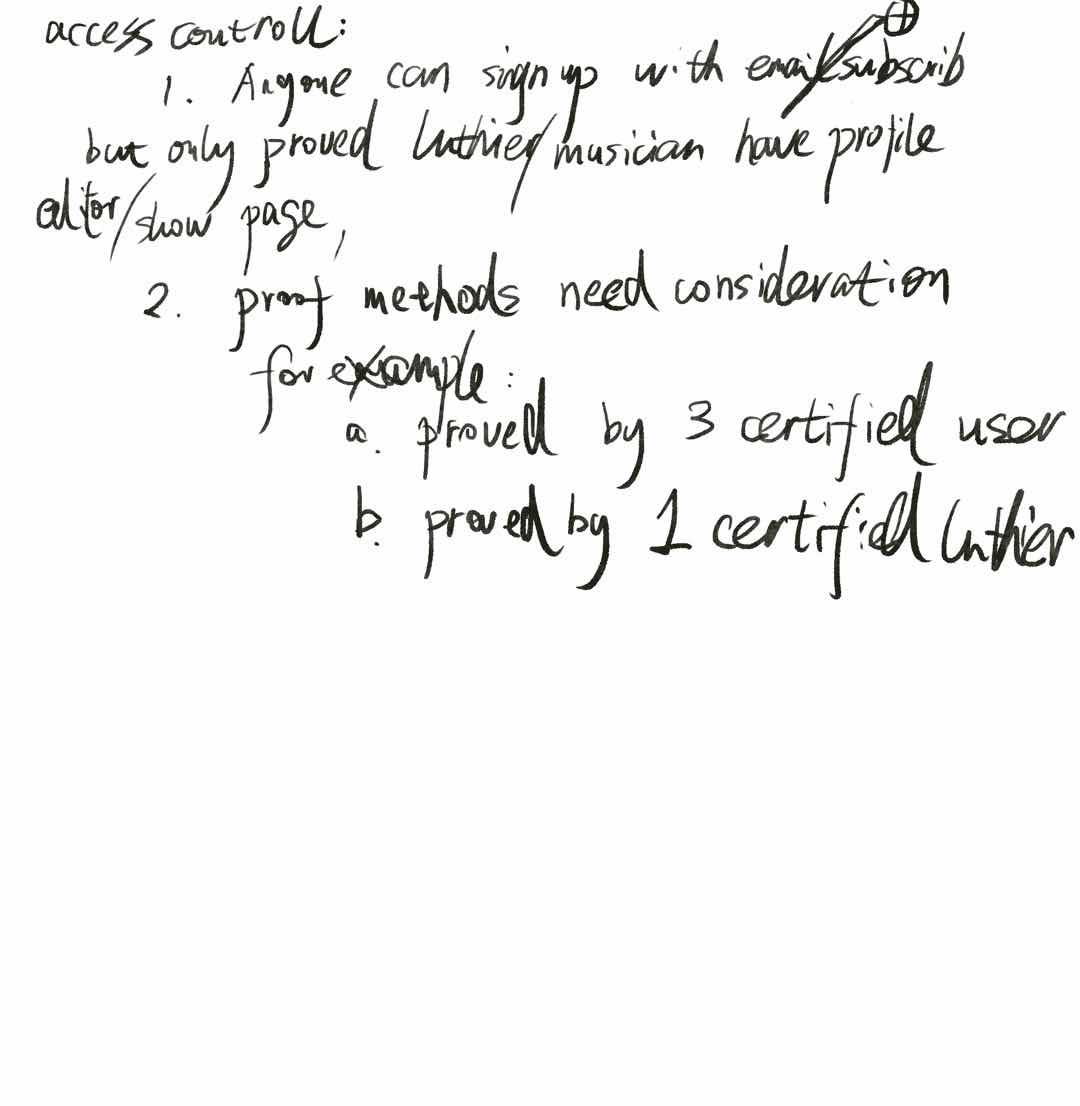 access controll:
1. Anyone can sign up with email/subscrib
but only proved luthier/musician have profile
editor/show page,
2. proof methods need consideration
for example:
a. proved by 3 certified user
b. proved by 1 certified luthier